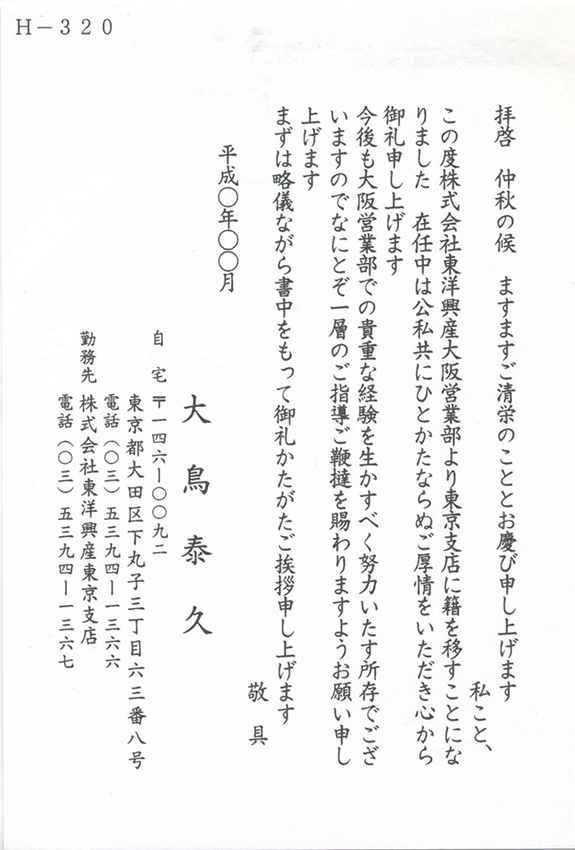 H－320
拝啓　仲秋の候　ますますご清栄のこととお慶び申し上げます
私こと、
この度株式会社東洋興産大阪営業部より東京支店に籍を移すことにな
りました　在任中は公私共にひとかたならぬご厚情をいただき心から
御礼申し上げます
今後も大阪営業部での貴重な経験を生かすべく努力いたす所存でござ
いますのでなにとぞ一層のご指導ご鞭撻を賜わりますようお願い申し
上げます
まずは略儀ながら書中をもって御礼かたがたご挨拶申し上げます
敬　具
平成〇年〇〇月
大鳥泰久
自　宅　〒一四六－〇〇九二
東京都大田区下丸子三丁目六三番八号
電話（〇三）五三九四－一三六六
勤務先　株式会社東洋興産東京支店
電話（〇三）五三九四－一三六七